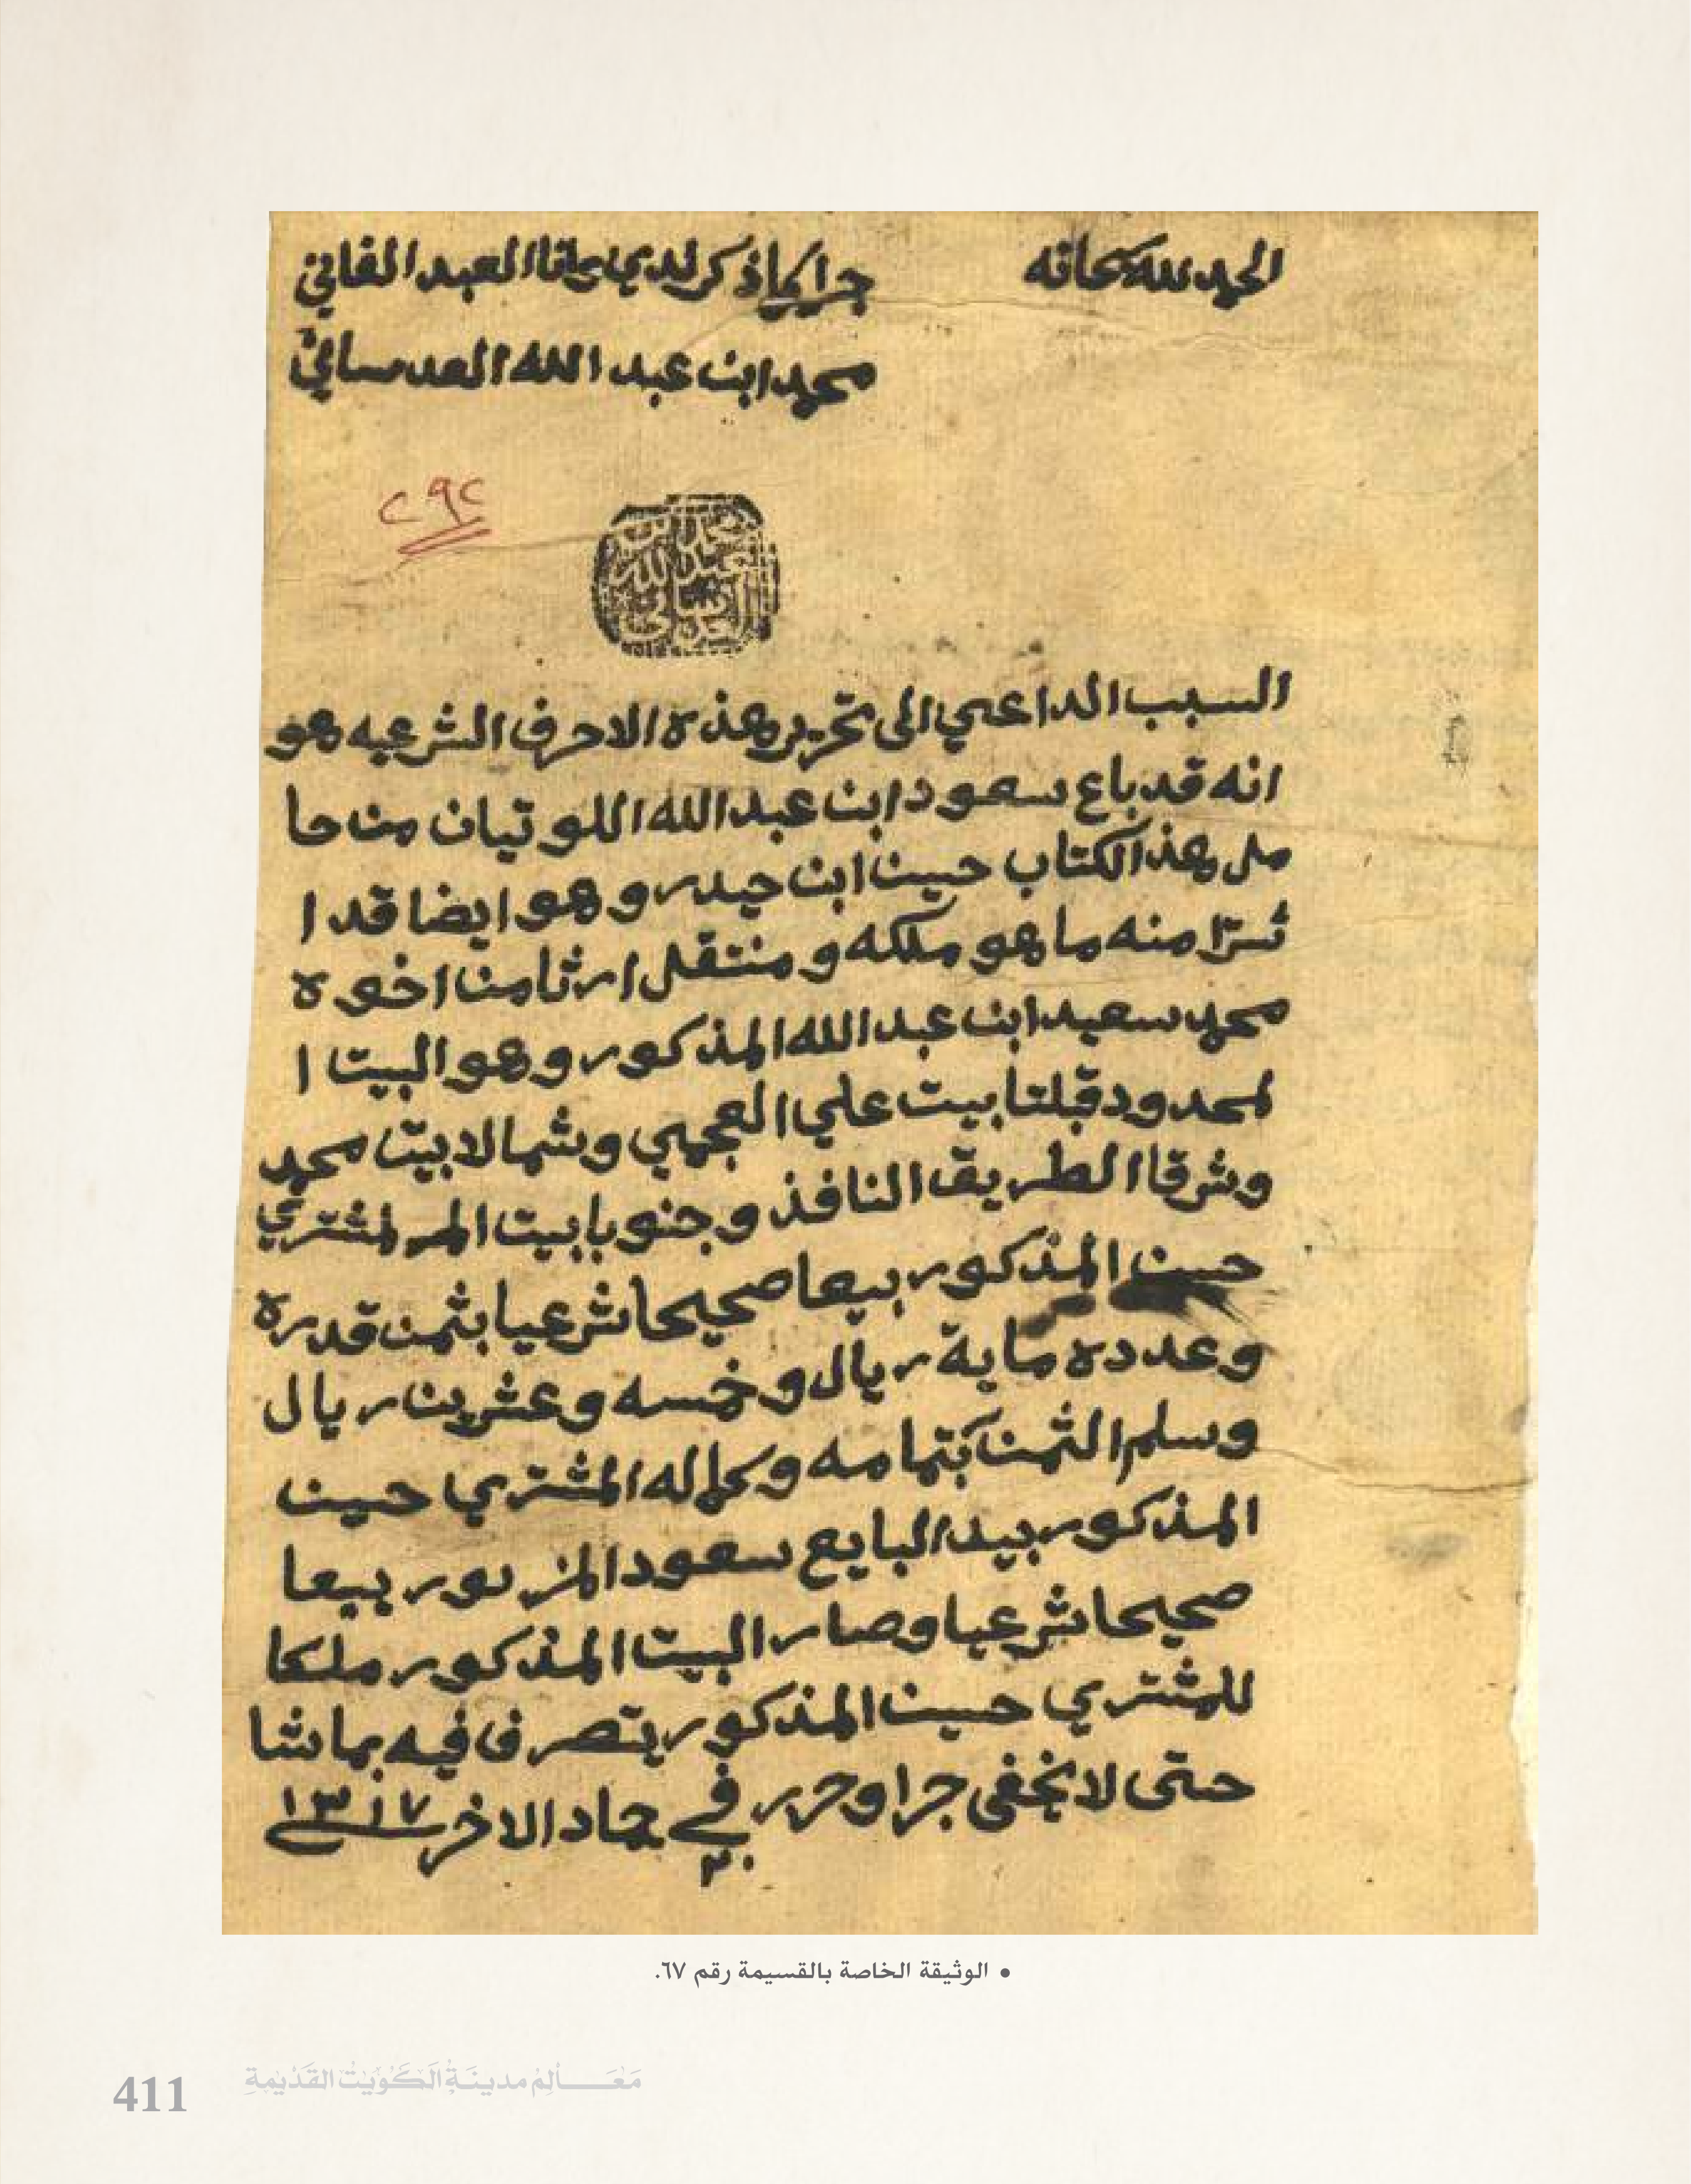 الحمد لله سبحانه
جرا كما ذكر لدي وانا العبد الفاني
محمد ابن عبد الله العدساني
٢٩٢
السبب الداعي الى تحرير هذه الاحرف الشرعيه هو
انه قد باع سعود ابن عبد الله اللوتيان من حا
مل هذ الكتاب حسين ابن حيدر وهو ايضا قد ا
شترا منه ما هو ملكه ومنتقل ارثا من اخوه
محمد سعيد ابن عبد الله المذكور وهو البيت ا
لمحدود قبلتا بيت علي العجمي وشمالا بيت محمد
وشرقا الطريق النافذ وجنوبا بيت المشتري
حسين المذكور بيعا صحيحا شرعيا بثمن قدره
وعدده ماية ريال وخمسه وعشرين ريال
وسلم الثمن بتمامه وكماله المشتري حسين
المذكور بيد البايع سعود المزبور بيعا
صحيحا شرعيا وصار البيت المذكور ملكا
للمشتري حسين المذكور يتصرف فيه بما شا
حتى لا يخفى جرا وحرر في ٢٠ جماد الاخر ١٣١٧
• الوثيقة الخاصة بالقسيمة رقم ٦٧.
مَعَالِم مدينَة الكُوَيْت القَدْيمَة
411